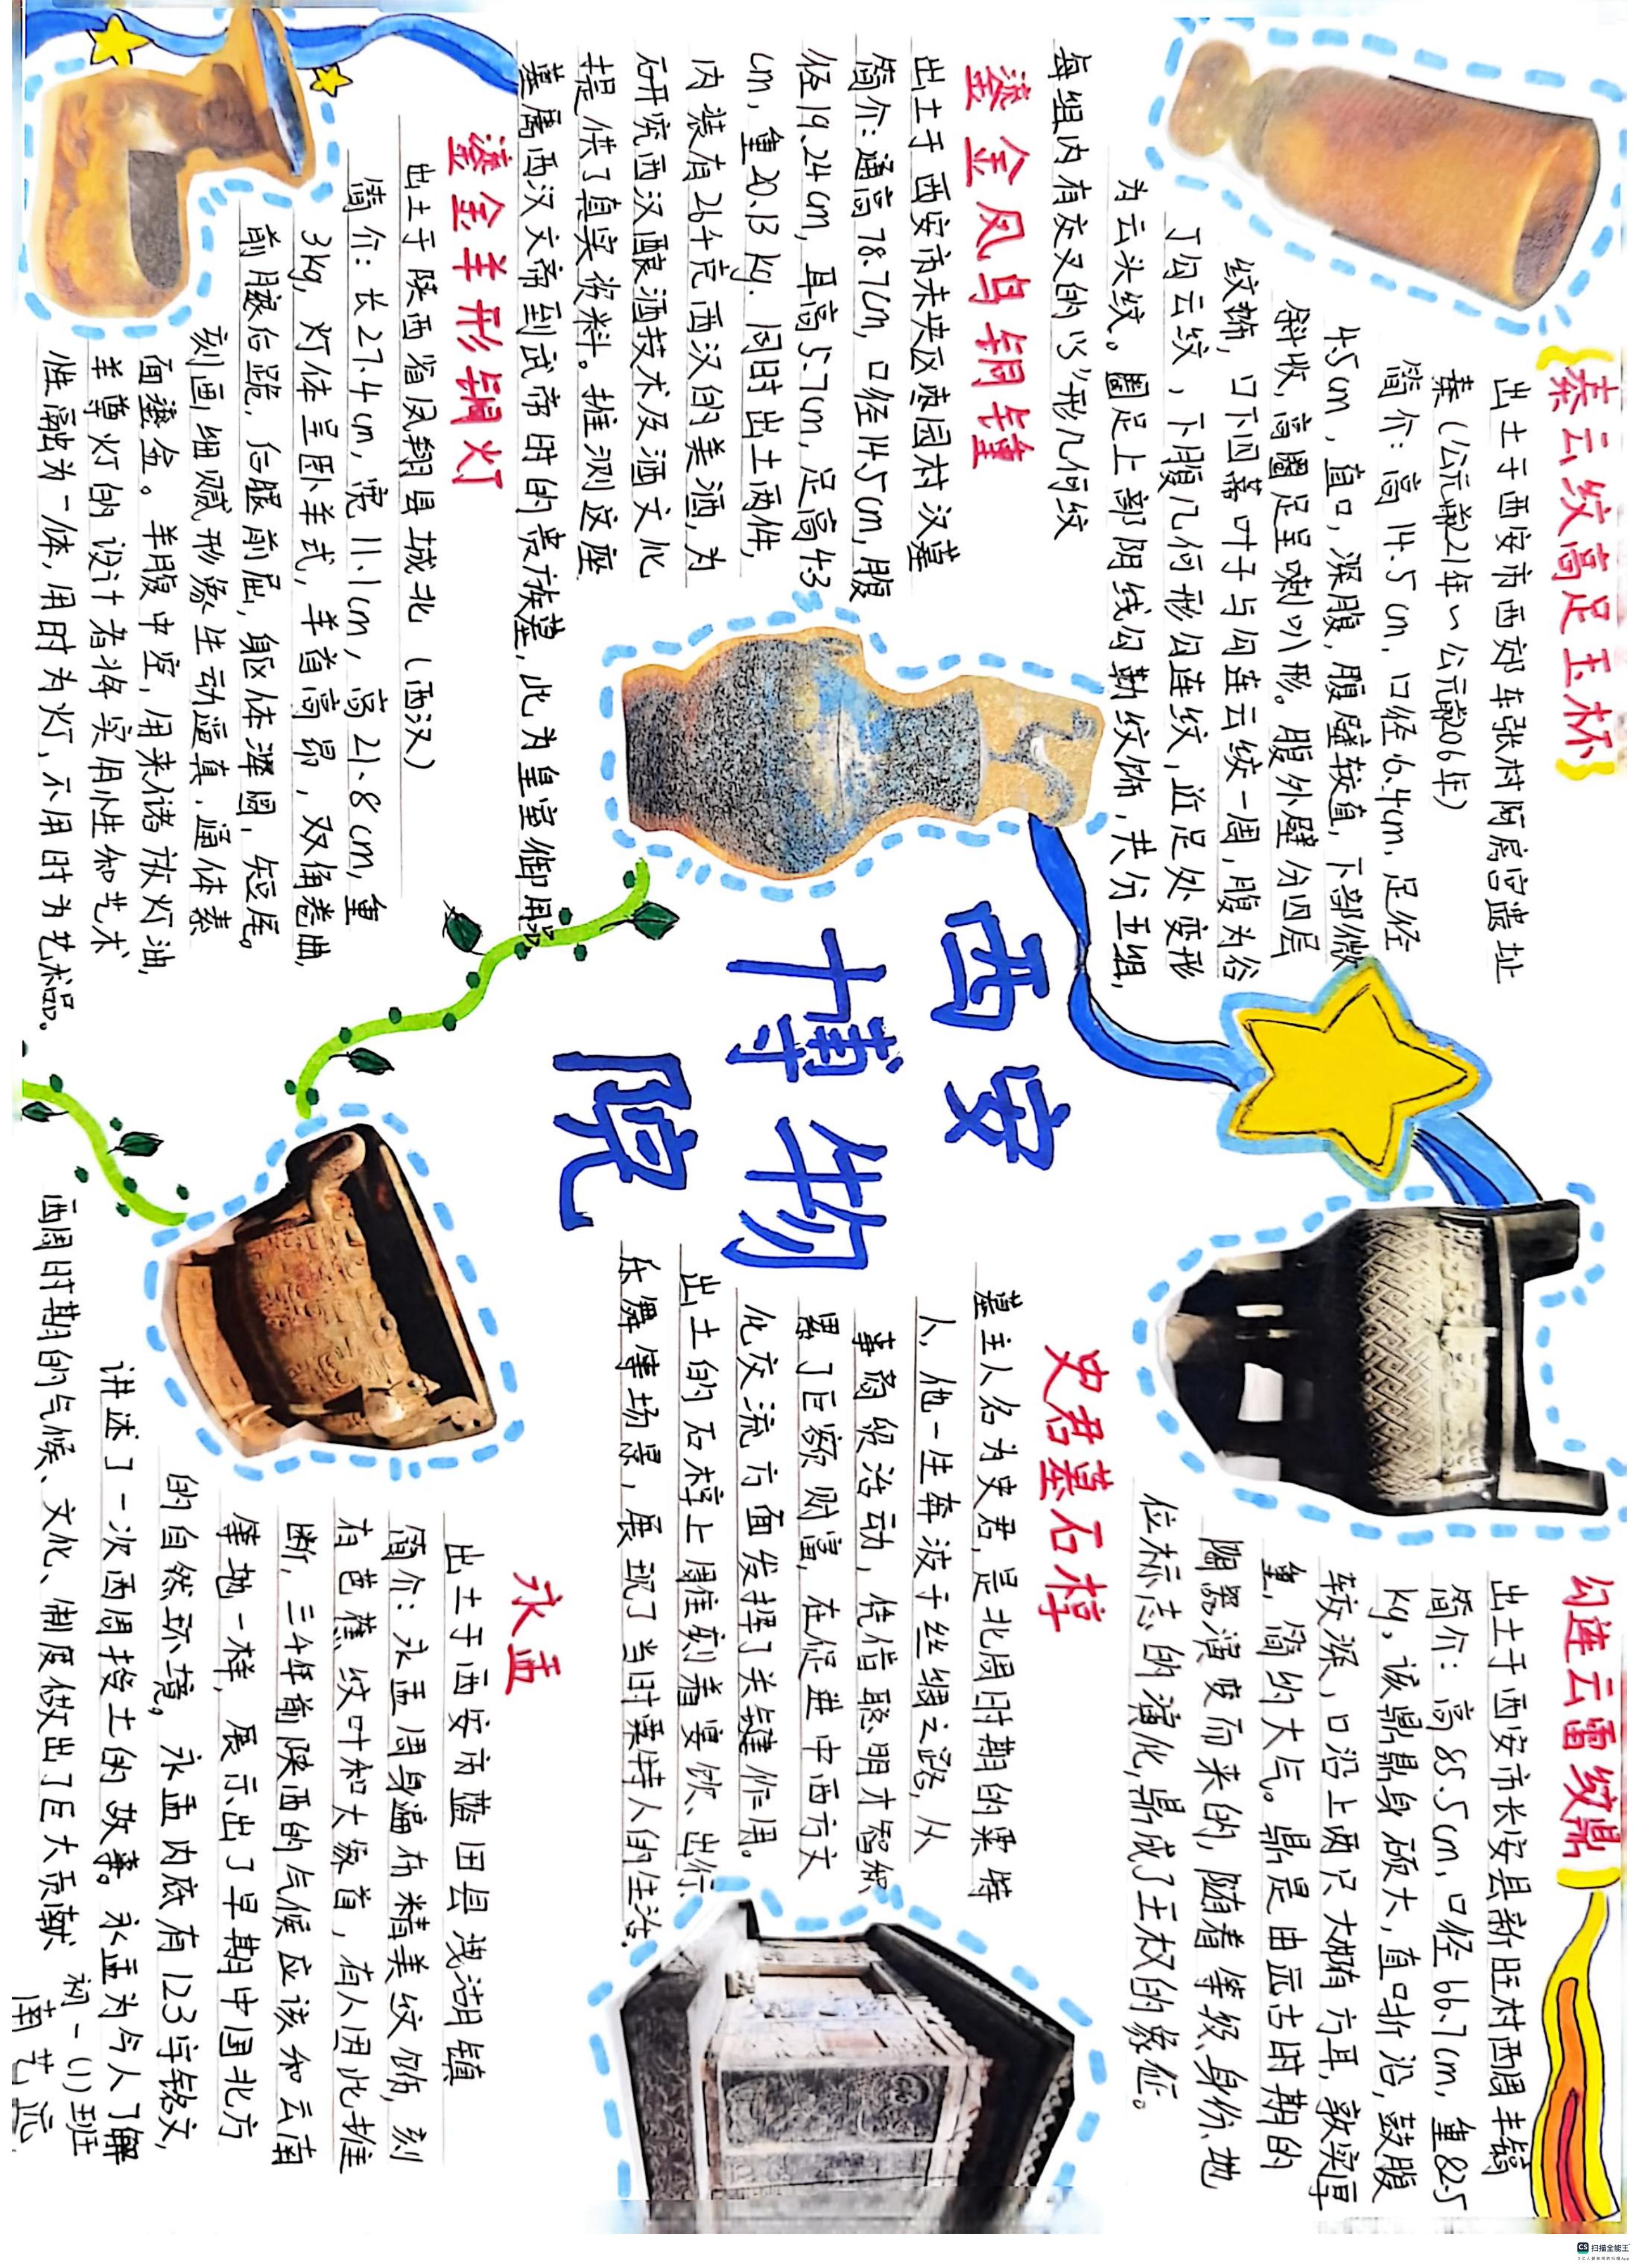 西安
博物
院
{秦云纹高足玉杯}
出土于西安市西郊车张村阿房宫遗址
秦(公元前221年~公元前206年)
简介:高14.5cm,口径6.4cm,足径
4.5cm,直口,深腹,腹壁较直,下部微
斜收,高圈足呈喇叭形。腹外壁份四层
纹饰,口下四蒂叶子与勾连云纹一周,腹为谷
丁勾云纹,下腹几何形勾连纹,近足处变形
为云头纹。圈足上部阴线勾勒纹饰,共分五组,
每组内有交叉的“S”形几何纹
鎏金凤鸟铜锺
出土于西安市未央区枣园村汉墓
简介:通高78.7cm,口径14.5cm,腹
径19.24cm,耳高5.7cm,足高4.3
cm,重20.13kg.同时出土两件,
内装有26千克西汉的美酒,为
研究西汉酿酒技术及酒文化
提供了真实资料。推测这座
墓属西汉文帝到武帝时的贵族墓,此为皇室御用品
鎏金羊形铜灯
出土于陕西省凤翔县城北(西汉)
简介:长27.4cm,宽11.1cm,高21.8cm,重
3kg,灯体呈卧羊式,羊首高昂,双角卷曲,
前腿后跪,后腿前屈,身躯体浑圆,短尾。
刻画细腻形象生动逼真.通体素
面鎏金。羊腹中空,用来储放灯油,
羊尊灯的设计者将实用性和艺术
性融为一体,用时为灯,不用时为艺术品。
勾连云雷纹鼎
出土于西安市长安县新旺村西周丰镐
简介:高85.5cm,口径66.7cm,重82.5
kg,该鼎鼎身硕大,直口折沿,鼓腹
较深,口沿上两只大椭方耳,敦实厚
重,简约大气。鼎是由远古时期的
陶器演变而来的,随着等级、身份、地
位标志的演化,鼎成了王权的象征。
史君墓石椁
墓主人名为史君,是北周时期的粟特
人,他一生奔波于丝绸之路,从
事商贸活动,凭借聪明才智积
累了巨额财富,在促进中西方文
化交流方面发挥了关键作用。
出土的石椁上周佳刻着宴饮、出行、
乐舞等场景,展现了当时粟特人的生活.
永盂
出土于西安市蓝田县洩湖镇
简介:永盂周身遍布精美纹饰,刻
有芭蕉纹叶和大象首,有人因此推
断,三千年前陕西的气候应该和云南
等地一样,展示出了早期中国北方
的自然环境。永盂内底有123字铭文,
讲述了一次西周授土的故事。永盂为今人了解
西周时期的气候、文化、制度做出了巨大贡献
初一(1)班
南艺远
CS 扫描全能王
3亿人都在用的扫描App